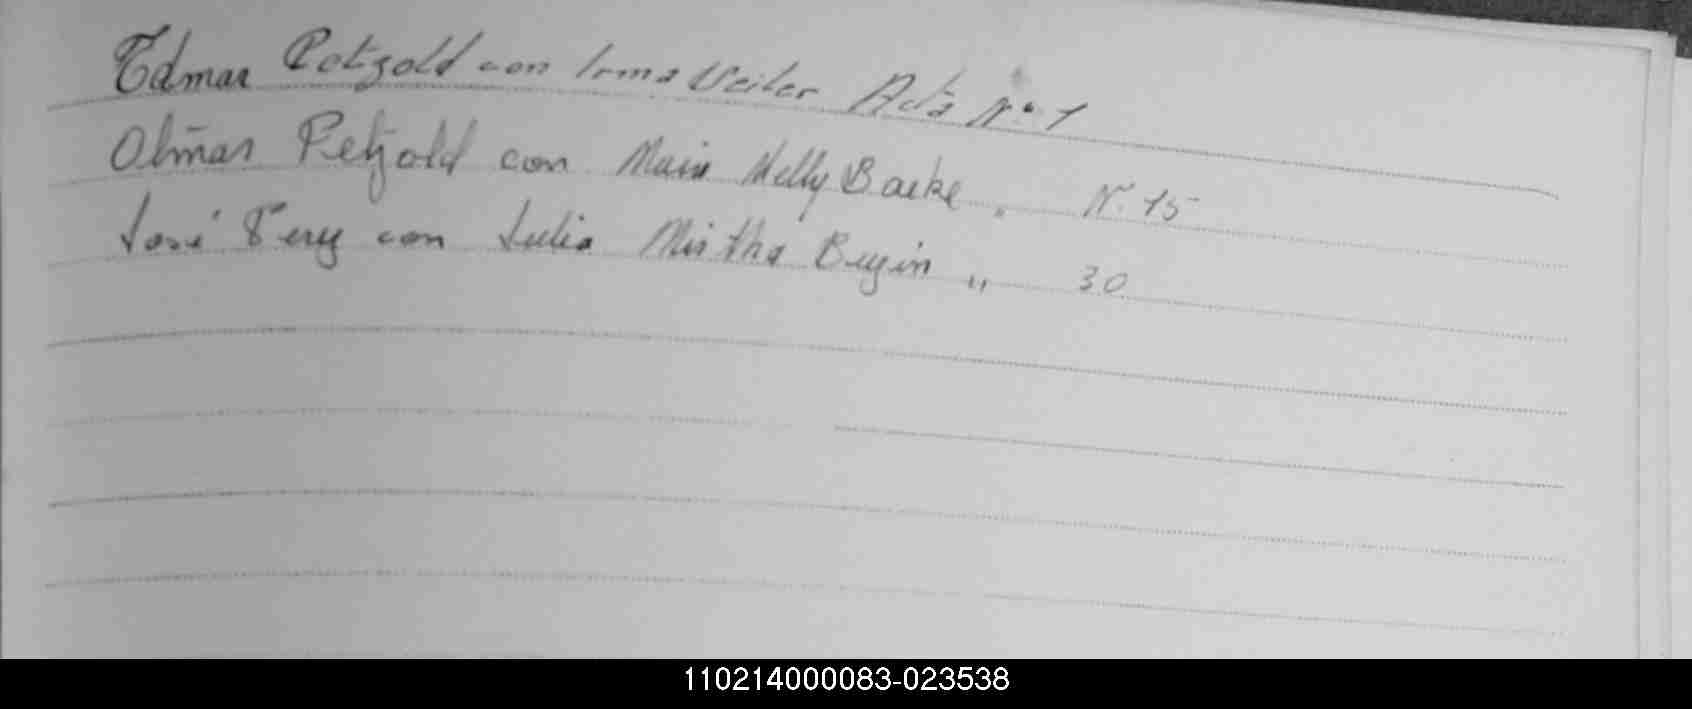 Edmar Petzold con Irma Weiler Acta Nº 1
Olmar Petzold con Maria Nelly Backe " Nº 15
José Fery con Julia Mirtha Beyin " 30
110214000083-023538